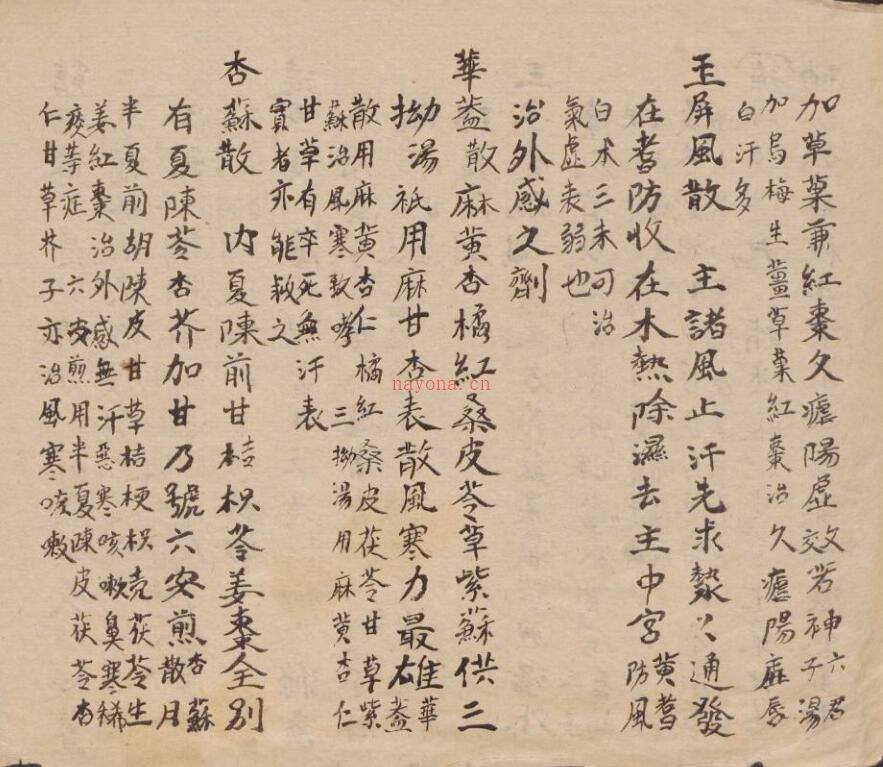 加草菓兼紅棗久瘧陽虛效若神六君子湯
加烏梅生薑草菓紅棗治久瘧陽虛唇
白汗多
玉屏風散 主諸風止汗先求勢々通發
在耆防收在木熱除濕去主中宮黃耆防風
白术三末可治
氣虛表弱也
治外感之劑
華蓋散麻黃杏橘紅桑皮苓草紫蘇供三
拗湯祇用麻甘杏表散風寒力最雄華蓋
散用麻黃杏仁橘紅桑皮茯苓甘草紫
蘇治風寒致哮 三拗湯用麻黃杏仁
甘草有卒死無汗表
實者亦能救之
杏蘇散 内夏陳前甘桔枳苓姜棗全別
有夏陳苓杏芥加甘乃號六安煎杏蘇散用
半夏前胡陳皮甘草桔梗枳壳茯苓生
姜紅棗治外感無汗惡寒咳嗽鼻寒稀
痰等症 六安煎用半夏陳皮茯苓杏
仁甘草芥子亦治風寒咳嗽
nayona.cn